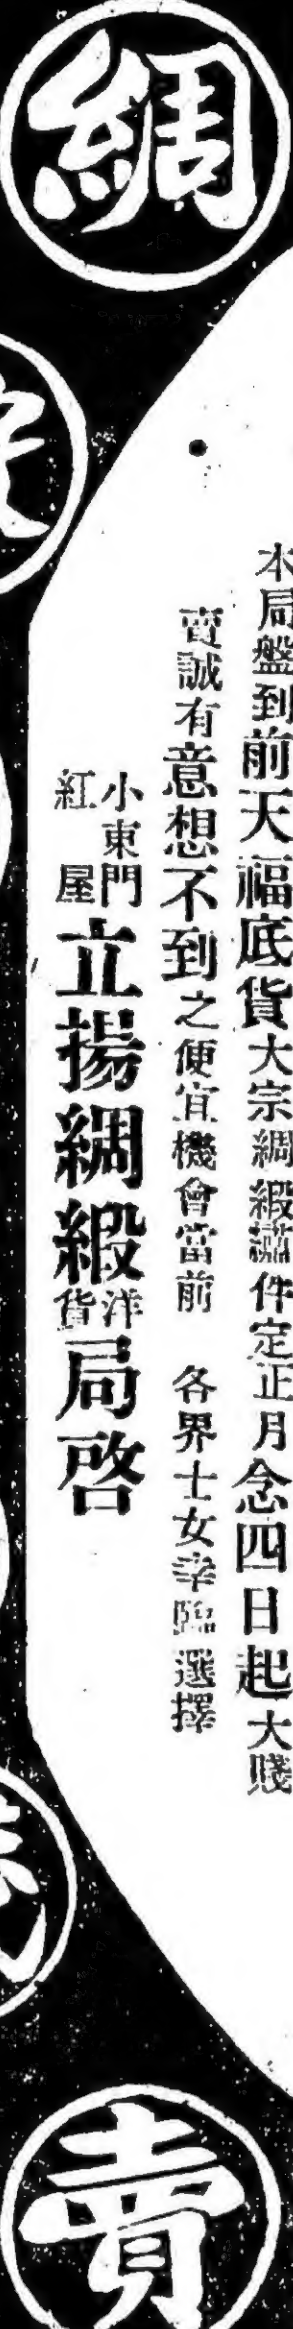 綢
本局盤到前天福底貨大宗綢緞繡件定正月念四日起大賤
賣誠有意想不到之便宜機會當前　各界士女幸臨選擇
小東門
紅屋
立揚綢緞洋貨局啓
賣